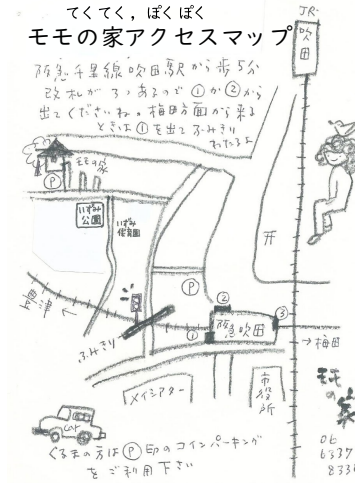 てくてく，ぽくぽく
モモの家アクセスマップ
阪急千里線吹田駅から歩5分
改札が3つあるので①か②から
出てくださいね。梅田方面から来る
ときは①を出てふみきり
わたるよ
JR
吹田
モモの家
P
いずみ公園
いずみ保育園
P
②
③
阪急吹田
①
ふみきり
→梅田
メイシアター
市役所
モモの家
06
6337
833
car
くるまの方はⓅ印のコインパーキング
をご利用下さい